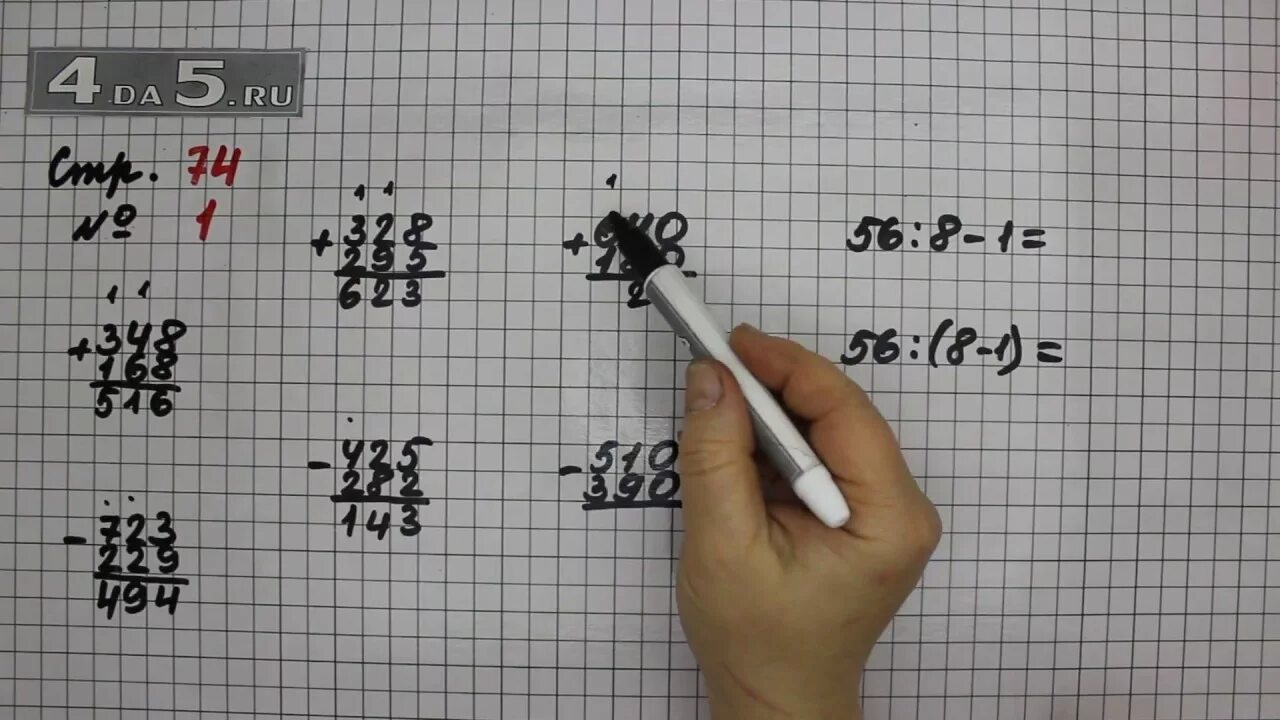 4DA5.RU
Стр. 74
№ 1
1 1
+348
168
516
- 723
229
494
1 1
+328
295
623
- 425
282
143
1
- 510
390
56:8-1=
56:(8-1)=